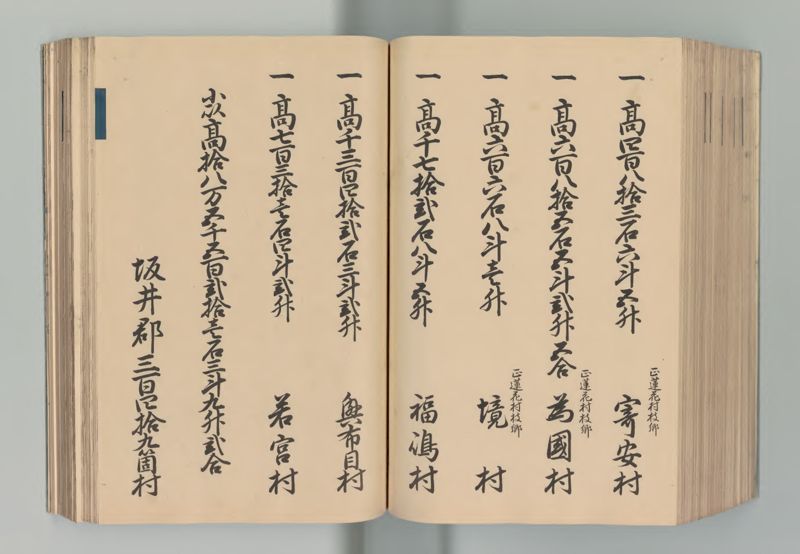 一 高四百八拾三石六斗五升 正蓮花村枝郷 寄安村
一 高六百八拾五石五斗弐升五合 正蓮花村枝郷 為國村
一 高六百六石八斗壱升 正蓮花村枝郷 境村
一 高千七拾弐石八斗五升 福嶋村
一 高千三百四拾弐石三斗弐升 奥布目村
一 高七百三拾壱石四斗弐升 若宮村
小以高拾八万五千五百弐拾壱石三斗九升弐合
坂井郡三百四拾九箇村